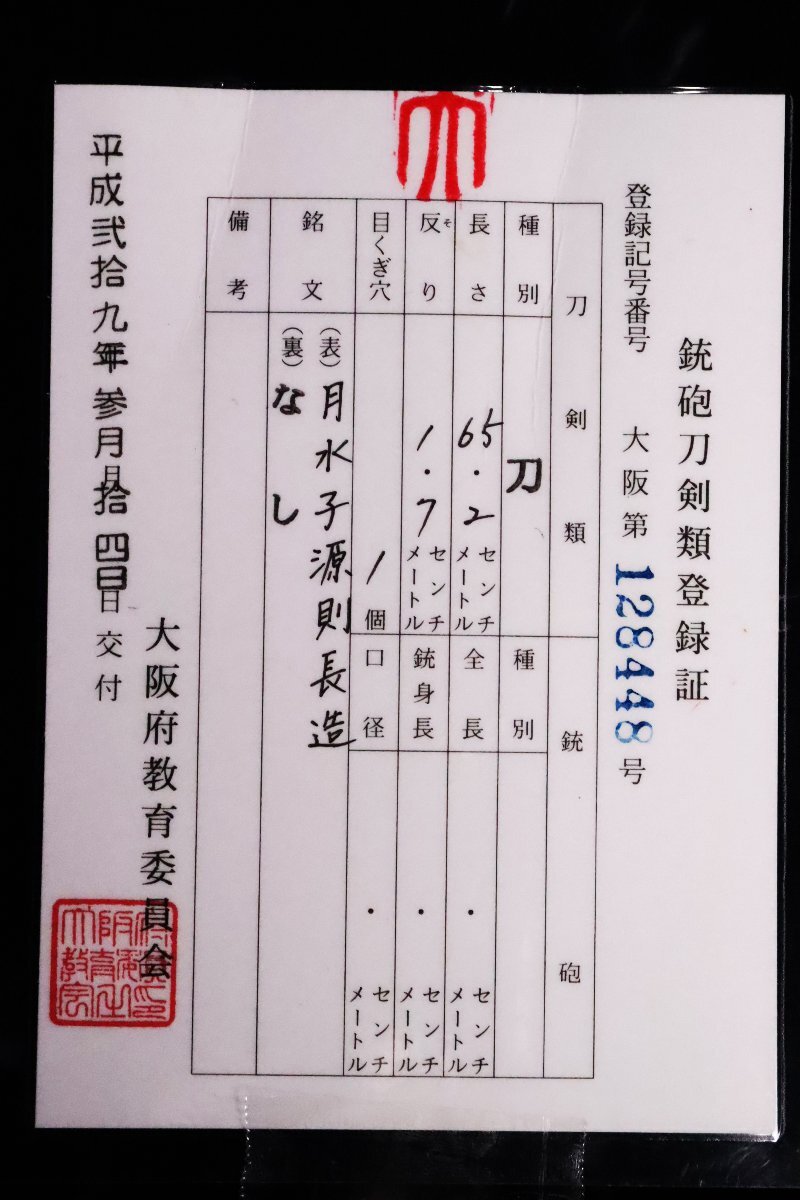 銃砲刀剣類登録証
登録記号番号 大阪第128448号
刀剣類
種別 刀
長さ 65.2センチメートル
反りそ 1.7センチメートル
目くぎ穴 1個
銘文 (表)月水子源則長造
(裏)なし
備考
銃砲
種別
全長 ・センチメートル
銃身長 ・センチメートル
口径 ・センチメートル
平成弐拾九年参月拾四日交付
大阪府教育委員会